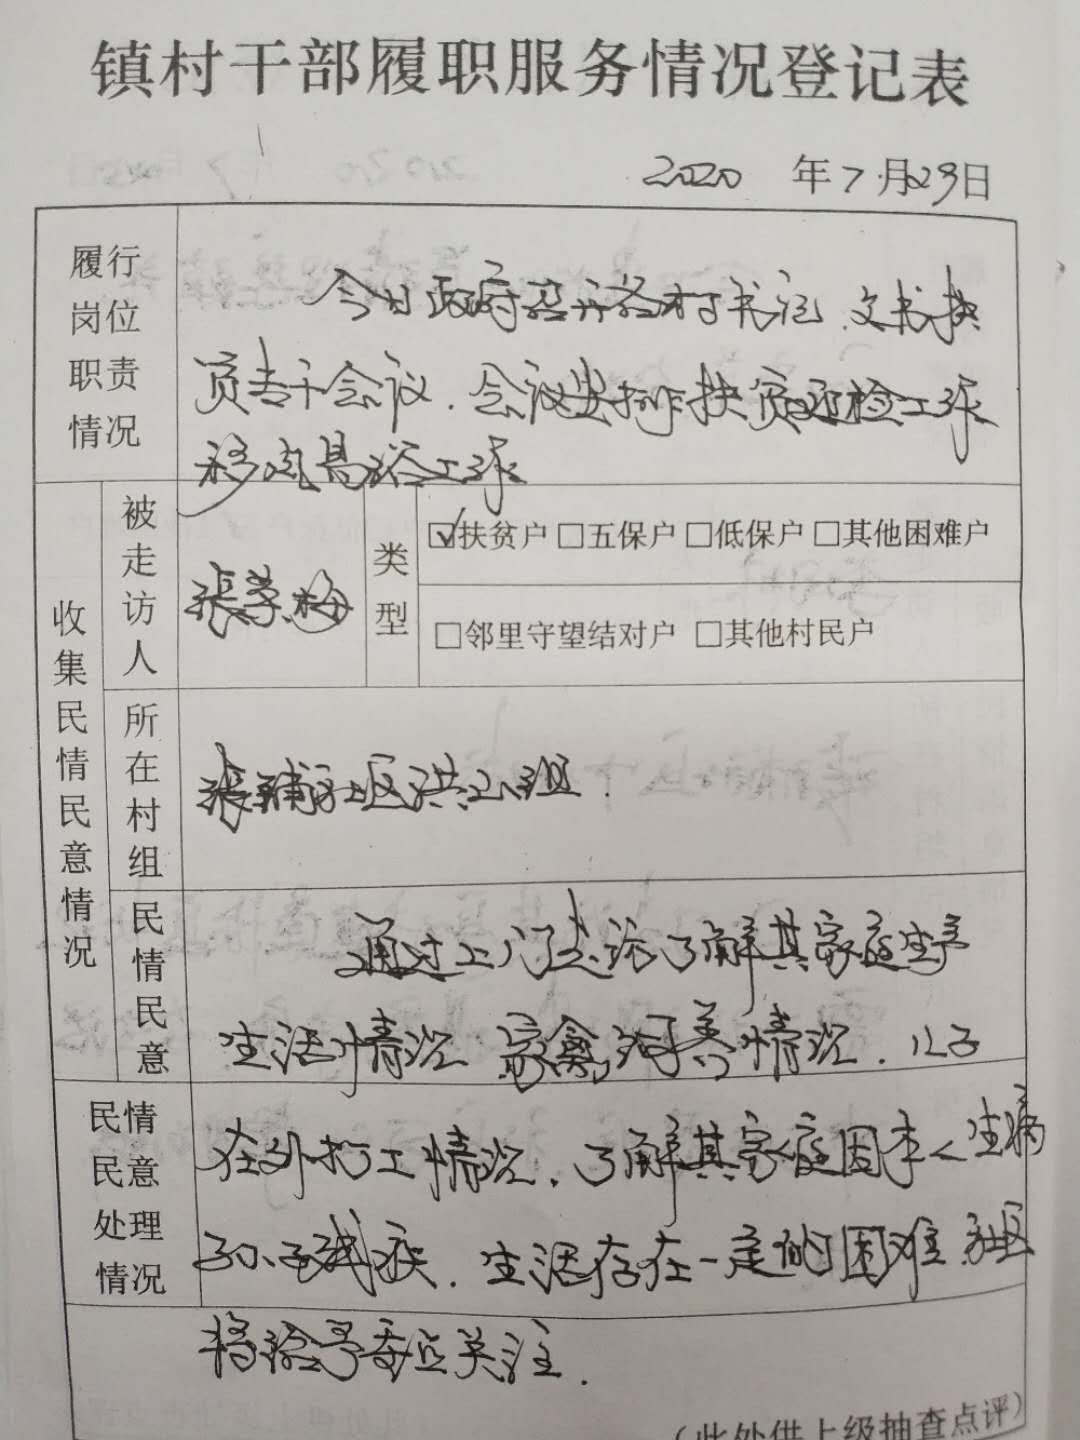 镇村干部履职服务情况登记表
2020 年7月29日
履行岗位职责情况
今日政府召开各村书记、文书扶
贫专干会议.会议安排扶贫迎检工作
移风易俗工作
收集民情民意情况
被走访人
张 梅
类型
☑扶贫户 □五保户 □低保户 □其他困难户
□邻里守望结对户 □其他村民户
所在村组
张铺社区洪山组.
民情民意
通过上门走访了解其家庭生产
生活情况 家禽饲养情况.儿子
民情民意处理情况
在外打工情况.了解其家庭因本人生病
孙子残疾.生活存在一定的困难.社区
将给予重点关注.
(此处供上级抽查点评)